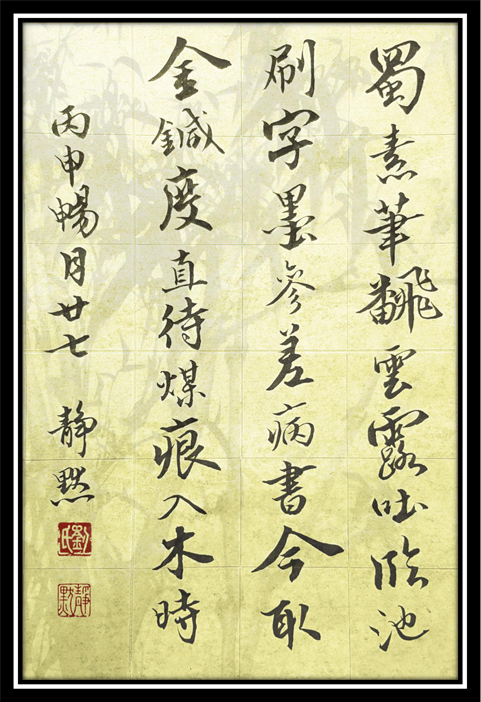 蜀素華飜雲露吐臨池
刷字墨參差病書今取
金鍼度直待煤痕入木時
丙申暢月廿七 靜黙
劉氏
靜默